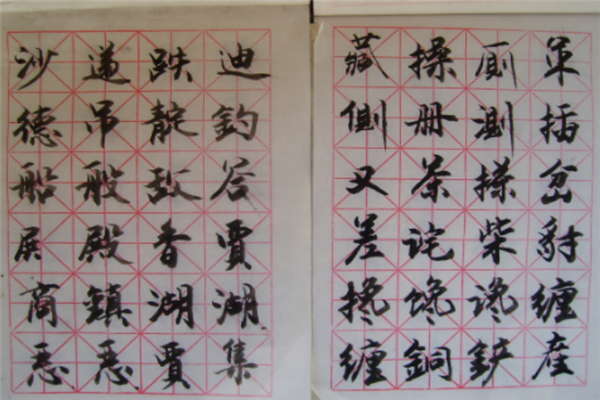 沙 跌 迪
德 吊 靛 鈞
船 般 敌 谷
展 殿 香 賈
商 鎮 湖 湖
恶 恶 賈 集
藏 操 厠
側 册 測 插
叉 茶 搽 岔
差 诧 柴 豺
搀 馋 谗 缠
缠 銅 鏟 産